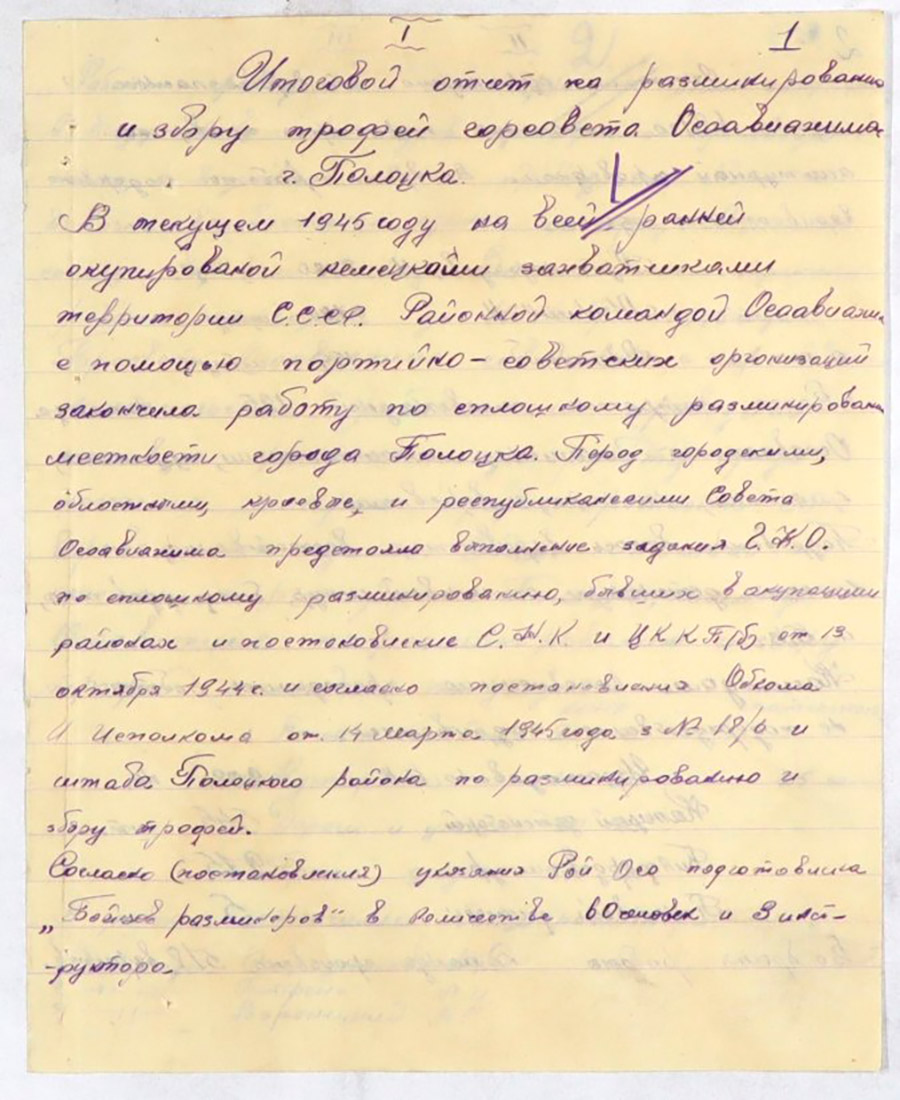 I
1
Итоговой отчет на разминированию
и збору трофей горсовета Осоавиахима
г. Полоцка.
В текущем 1945 году на всей ранней
окупированой немецкими захватчиками
территории С.С.С.Р. Районной командой Осоавиахи-
с помощью портийно-советских организаций
закончила работу по сплошному разминирован
местности города Полоцка. Перод городскими,
областными, и республиканскими Совета
Осоавиахима предстояла выполнение задания Г.К.О.
по сплошному разминированию, бывших в окупации
районах и постоновление С.Н.К и ЦК КП/б) от 13
октября 1944 г. и согласно постановления Обкома
И Исполкома от 14 марта 1945 года з № 18/6 и
штаба Полоцкого района по разминированию и
збору трофей.
Согласно (постановления) указания Рай Осо подготовила
„Бойцов размин��ров" в количестве 60 человек и 3 инст-
-руктора